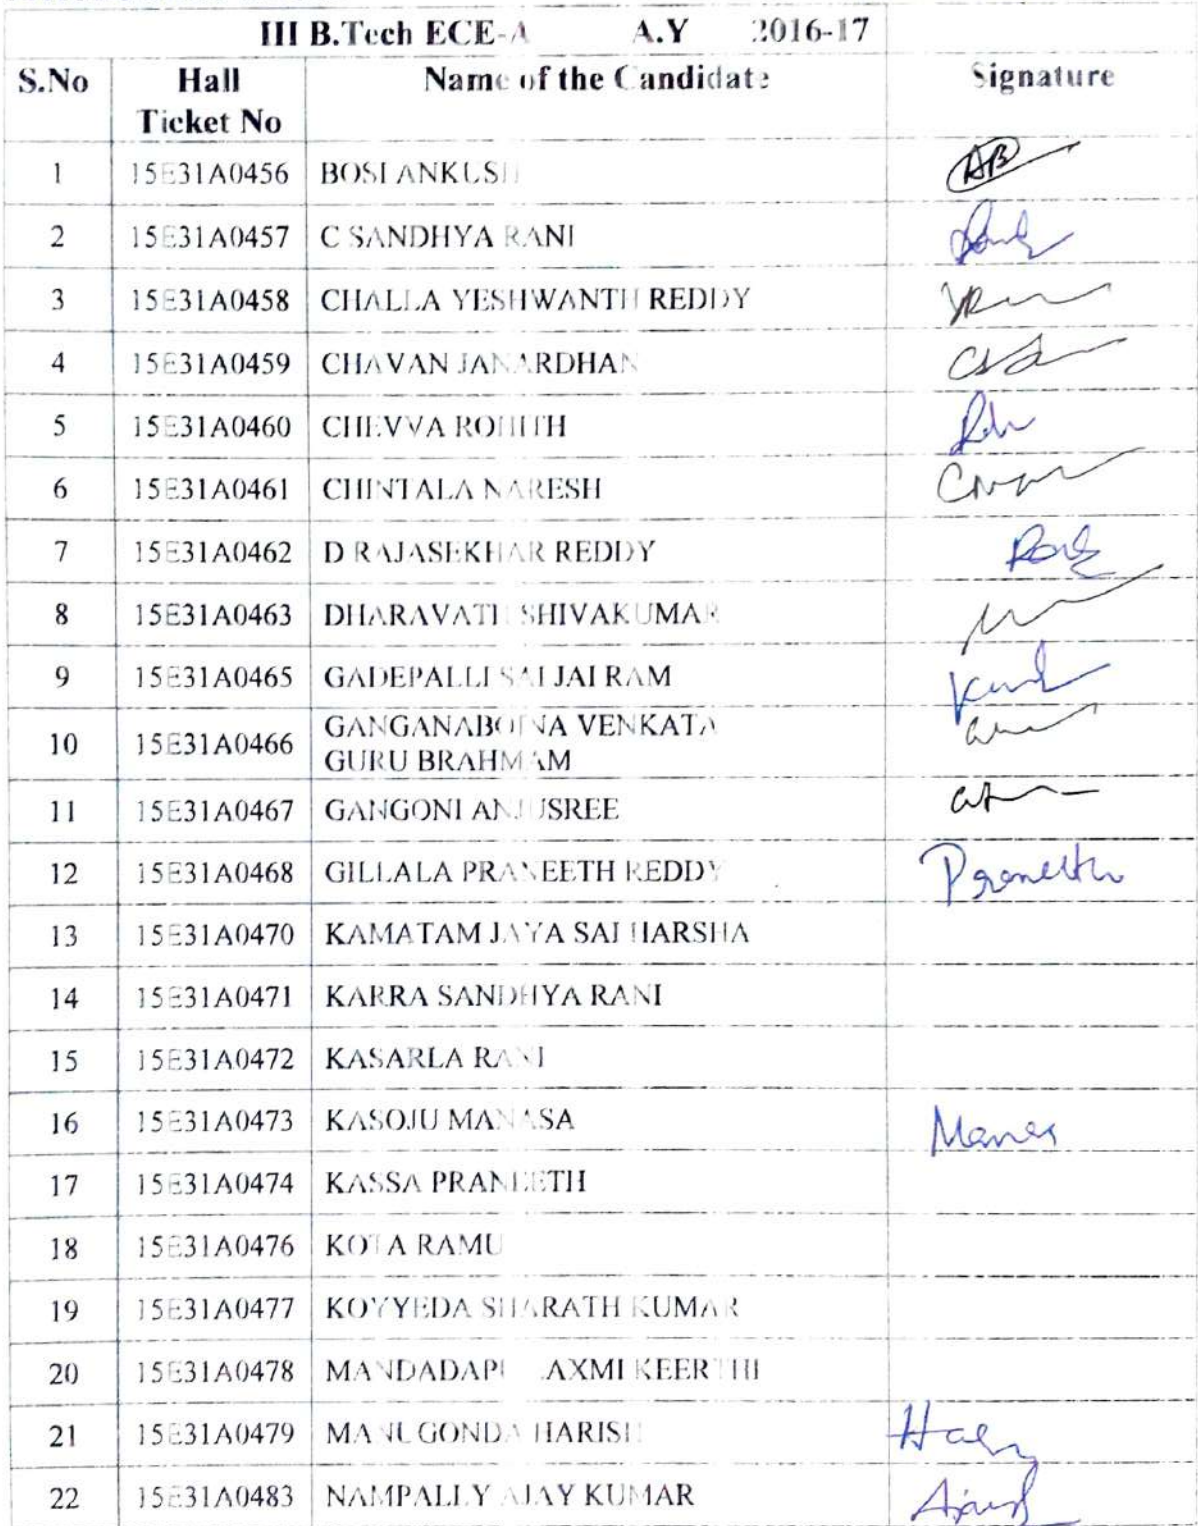 III B.Tech ECE-A A.Y 2016-17
S.No Hall Ticket No Name of the Candidate Signature
1 15E31A0456 BOSI ANKUSH AB
2 15E31A0457 C SANDHYA RANI
3 15E31A0458 CHALLA YESHWANTH REDDY
4 15E31A0459 CHAVAN JANARDHAN
5 15E31A0460 CHEVVA ROHITH
6 15E31A0461 CHINTALA NARESH
7 15E31A0462 D RAJASEKHAR REDDY
8 15E31A0463 DHARAVATH SHIVAKUMAR
9 15E31A0465 GADEPALLI SAI JAI RAM
10 15E31A0466 GANGANABOINA VENKATA
GURU BRAHMAM
11 15E31A0467 GANGONI ANJUSREE
12 15E31A0468 GILLALA PRANEETH REDDY Praneeth
13 15E31A0470 KAMATAM JAYA SAI HARSHA
14 15E31A0471 KARRA SANDHYA RANI
15 15E31A0472 KASARLA RANI
16 15E31A0473 KASOJU MANASA
17 15E31A0474 KASSA PRANEETH
18 15E31A0476 KOTA RAMU
19 15E31A0477 KOYYEDA SHARATH KUMAR
20 15E31A0478 MANDADAPU LAXMI KEERTHI
21 15E31A0479 MANUGONDA HARISH
22 15E31A0483 NAMPALLY AJAY KUMAR